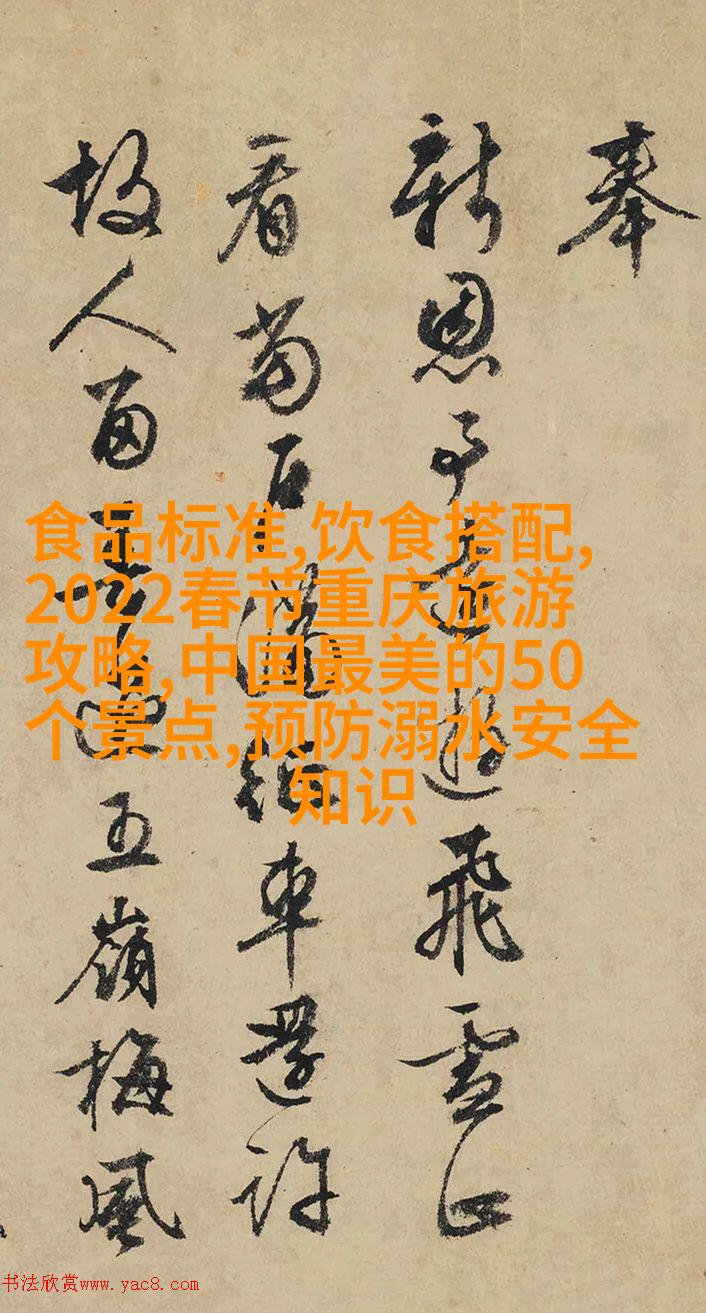 奉
新恩予遊飛雪正
看滿車還許
故人五嶺梅風
食品标准,饮食搭配,
2022春节重庆旅游
攻略,中国最美的50
个景点,预防溺水安全
知识
书法欣赏www.yac8.com